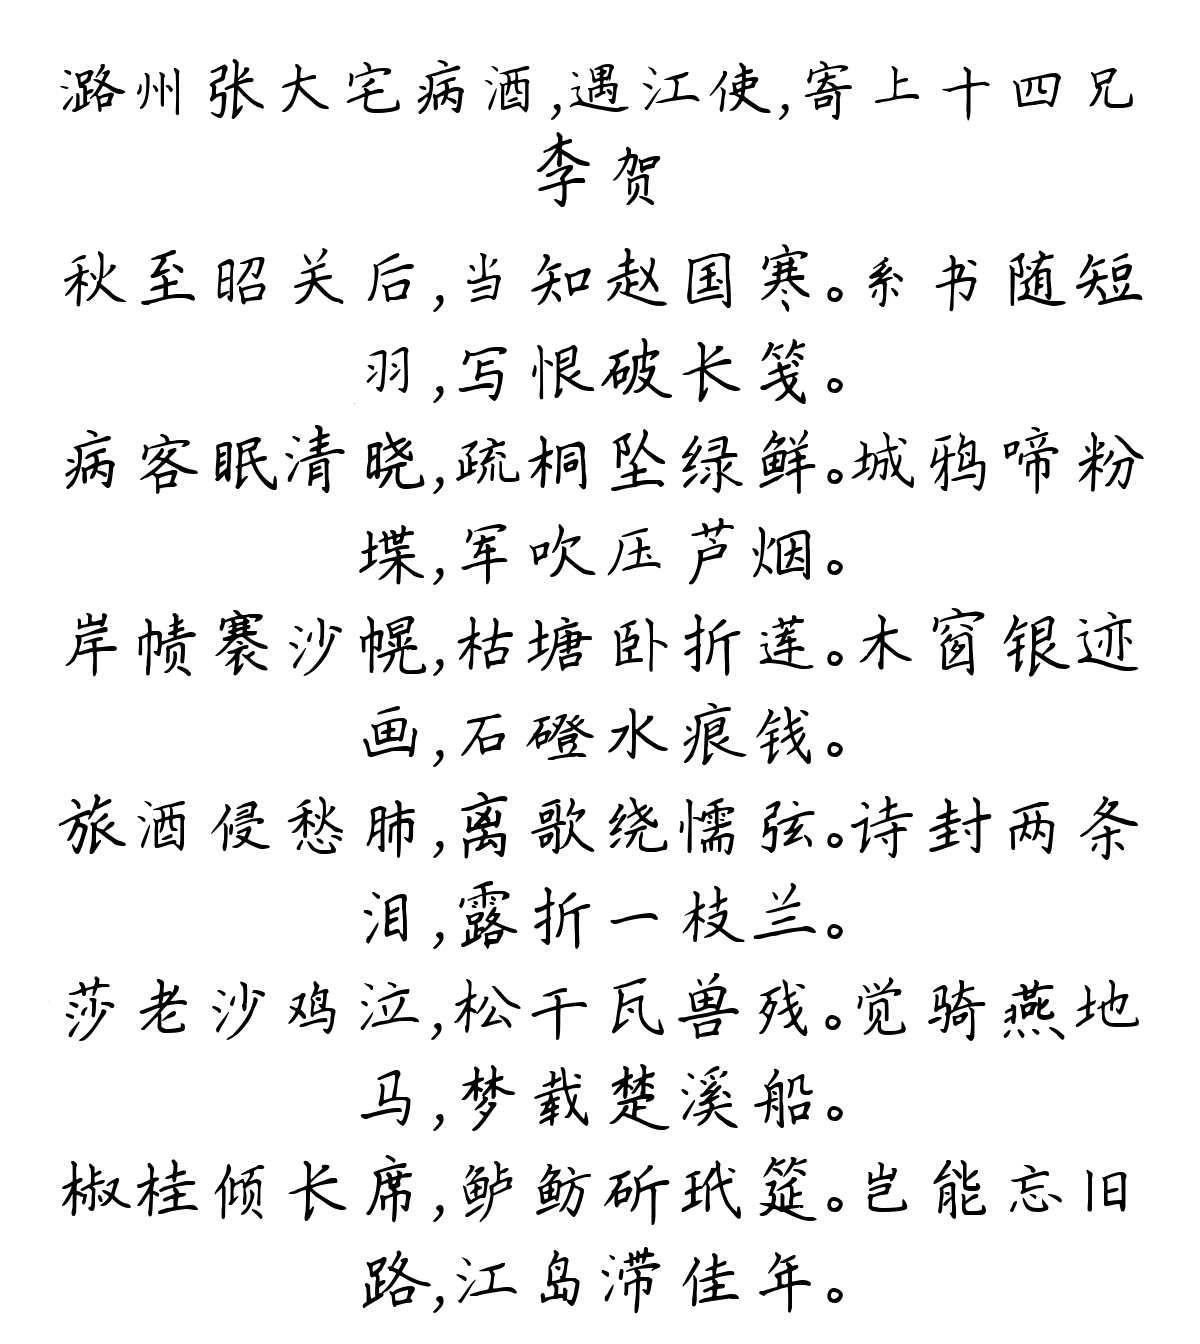 潞州张大宅病酒,遇江使,寄上十四兄
李贺
秋至昭关后,当知赵国寒。系书随短
羽,写恨破长笺。
病客眠清晓,疏桐坠绿鲜。城鸦啼粉
堞,军吹压芦烟。
岸帻褰沙幌,枯塘卧折莲。木窗银迹
画,石磴水痕钱。
旅酒侵愁肺,离歌绕懦弦。诗封两条
泪,露折一枝兰。
莎老沙鸡泣,松干瓦兽残。觉骑燕地
马,梦载楚溪船。
椒桂倾长席,鲈鲂斫玳筵。岂能忘旧
路,江岛滞佳年。